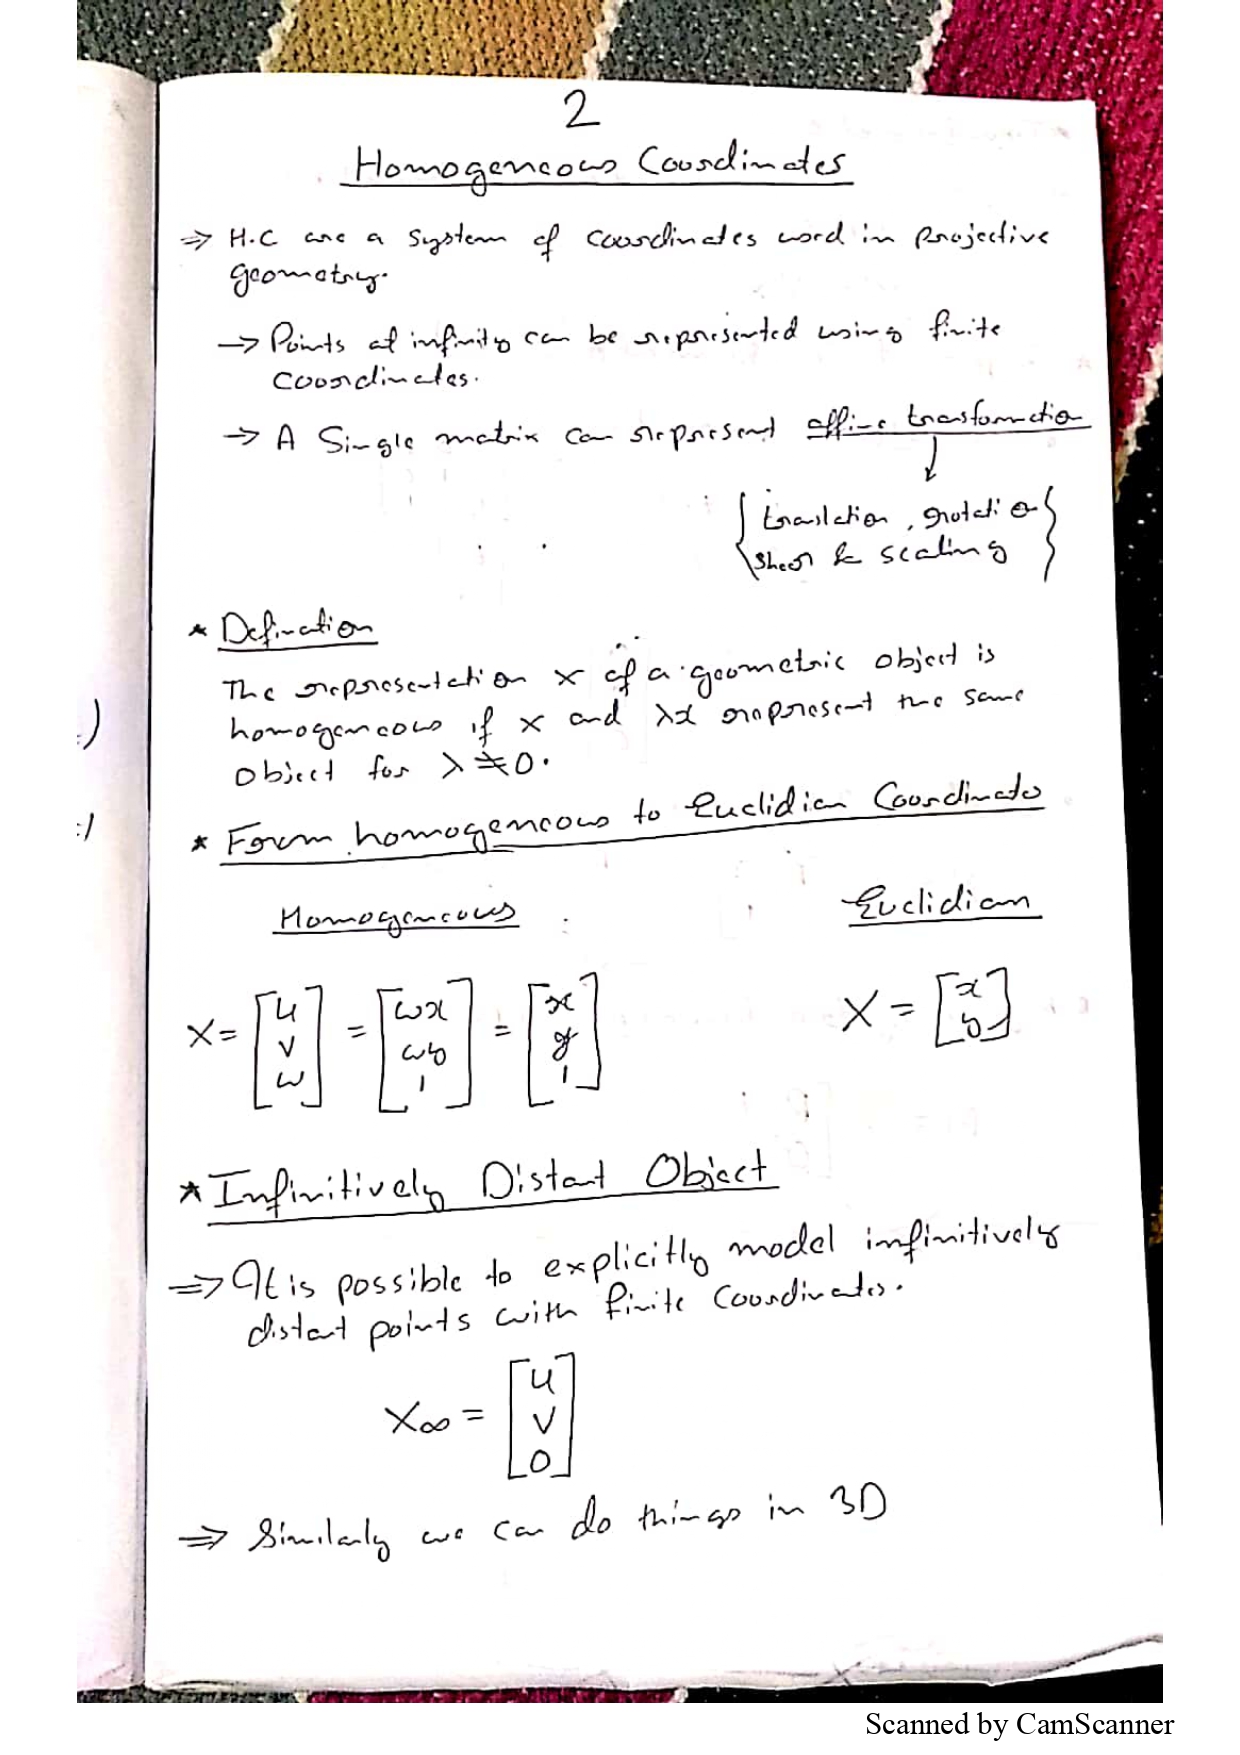 2
Homogeneous Coordinates
⇒ H.C are a system of coordinates used in projective
geometry.
→ Points at infinity can be represented using finite
coordinates.
→ A Single matrix can represent affine transformation
{ translation, rotation
shear & scaling }
* Defination
The representation x of a geometric object is
homogeneous if x and λx represent the same
object for λ ≠ 0.
* From homogeneous to Euclidian Coordinates
Homogeneous Euclidian
X = [u v w] = [wx wy 1] = [x y 1] X = [x y]
* Infinitively Distant Object
⇒ It is possible to explicitly model infinitively
distant points with finite coordinates.
X∞ = [u v 0]
⇒ Similarly we can do things in 3D
Scanned by CamScanner